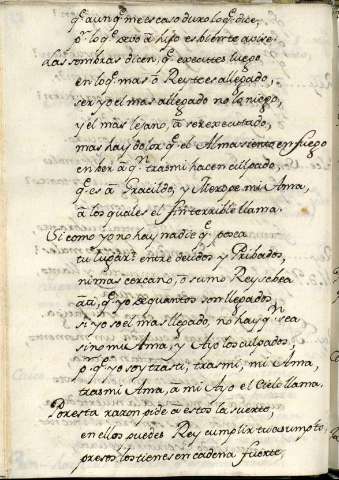 q̃ aunq̃ me es caso duro lo q̃ dice,
p.ʳ lo q̃ devo à hijo es bien te avise.
Las sombras dicen, q̃ executes luego
en lo q̃ mas ò Rey te es allegado,
ser yo el mas allegado no lo niego,
y el mas lejano, à ser executado,
mas hay dolor q̃ el Alma siente en fuego
en ver à q.ⁿ tras mi hacen culpado,
q̃ es à Gracildo, y Merope mi Ama,
à los quales el fin terrible llama.
Si como yo no hay nadie q̃ posea
tu lugar entre deudos y Pribados,
ni mas cercano, ò sumo Rey se vea
à ti, q̃ yo de quantos son llegados
si yo soi el mas llegado, no hay q.ⁿ sea
sino mi Ama, y Ajo los culpados,
p.ʳ q̃ yo soy tras ti, tras mi, mi Ama,
tras mi Ama, a mi Ajo el Cielo llama.
Por esta razon pide a estos la suerte,
en ellos puedes Rey cumplir tu asumpto,
presos los tienes en cadena fuerte,